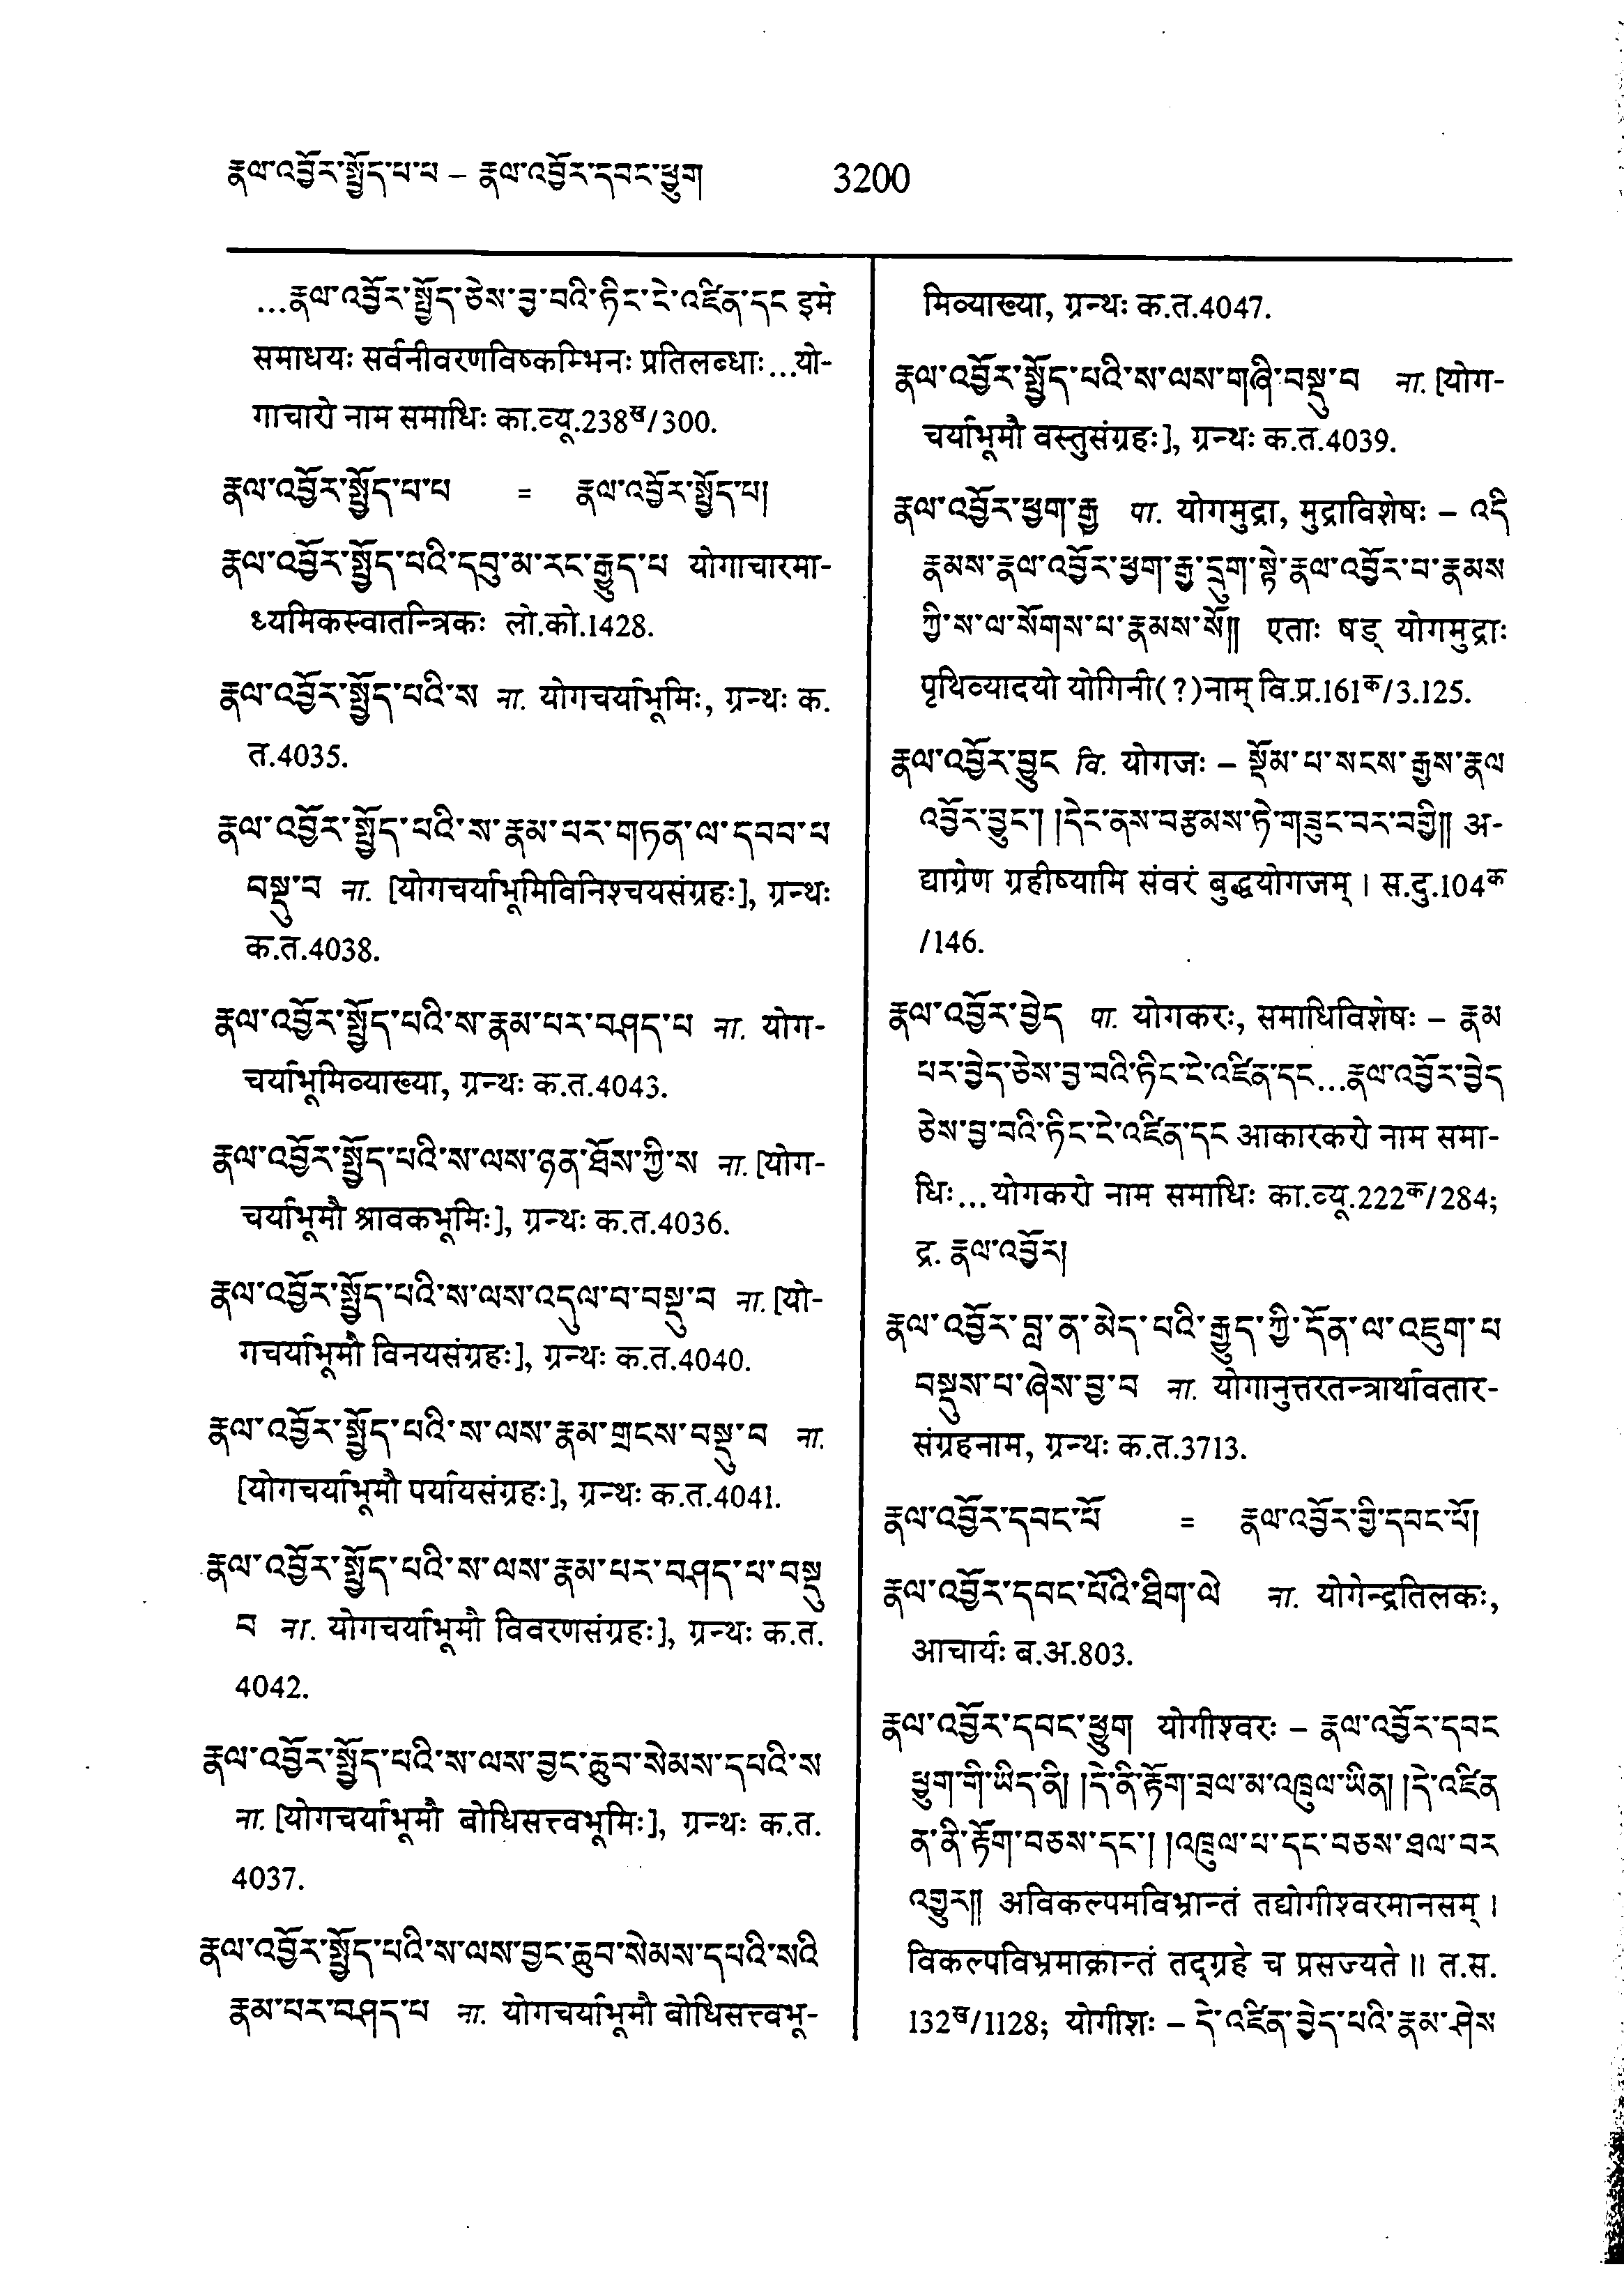 རྣལ་འབྱོར་སྤྱོད་པ་པ – རྣལ་འབྱོར་དབང་ཕྱུག 3200
...རྣལ་འབྱོར་སྤྱོད་ཅེས་བྱ་བའི་ཏིང་ངེ་འཛིན་དང इमे
समाधयः सर्वनीवरणविष्कम्भिनः प्रतिलब्धाः...यो-
गाचारो नाम समाधिः का.व्यू.238ख/300.
རྣལ་འབྱོར་སྤྱོད་པ་པ = རྣལ་འབྱོར་སྤྱོད་པ།
རྣལ་འབྱོར་སྤྱོད་པའི་དབུ་མ་རང་རྒྱུད་པ योगाचारमा-
ध्यमिकस्वातन्त्रिकः लो.को.1428.
རྣལ་འབྱོར་སྤྱོད་པའི་ས ना. योगचर्याभूमिः, ग्रन्थः क.
त.4035.
རྣལ་འབྱོར་སྤྱོད་པའི་ས་རྣམ་པར་གཏན་ལ་དབབ་པ
བསྡུ་བ ना. [योगचर्याभूमिविनिश्चयसंग्रहः], ग्रन्थः
क.त.4038.
རྣལ་འབྱོར་སྤྱོད་པའི་ས་རྣམ་པར་བཤད་པ ना. योग-
चर्याभूमिव्याख्या, ग्रन्थः क.त.4043.
རྣལ་འབྱོར་སྤྱོད་པའི་ས་ལས་ཉན་ཐོས་ཀྱི་ས ना. [योग-
चर्याभूमौ श्रावकभूमिः], ग्रन्थः क.त.4036.
རྣལ་འབྱོར་སྤྱོད་པའི་ས་ལས་འདུལ་བ་བསྡུ་བ ना. [यो-
गचर्याभूमौ विनयसंग्रहः], ग्रन्थः क.त.4040.
རྣལ་འབྱོར་སྤྱོད་པའི་ས་ལས་རྣམ་གྲངས་བསྡུ་བ ना.
[योगचर्याभूमौ पर्यायसंग्रहः], ग्रन्थः क.त.4041.
རྣལ་འབྱོར་སྤྱོད་པའི་ས་ལས་རྣམ་པར་བཤད་པ་བསྡུ
བ ना. योगचर्याभूमौ विवरणसंग्रहः], ग्रन्थः क.त.
4042.
རྣལ་འབྱོར་སྤྱོད་པའི་ས་ལས་བྱང་ཆུབ་སེམས་དཔའི་ས
ना. [योगचर्याभूमौ बोधिसत्त्वभूमिः], ग्रन्थः क.त.
4037.
རྣལ་འབྱོར་སྤྱོད་པའི་ས་ལས་བྱང་ཆུབ་སེམས་དཔའི་སའི
རྣམ་པར་བཤད་པ ना. योगचर्याभूमौ बोधिसत्त्वभू-
मिव्याख्या, ग्रन्थः क.त.4047.
རྣལ་འབྱོར་སྤྱོད་པའི་ས་ལས་གཞི་བསྡུ་བ ना. [योग-
चर्याभूमौ वस्तुसंग्रहः], ग्रन्थः क.त.4039.
རྣལ་འབྱོར་ཕྱག་རྒྱ पा. योगमुद्रा, मुद्राविशेषः – འདི
རྣམས་རྣལ་འབྱོར་ཕྱག་རྒྱ་དྲུག་སྟེ་རྣལ་འབྱོར་པ་རྣམས
ཀྱི་ས་ལ་སོགས་པ་རྣམས་སོ༎ एताः षड् योगमुद्राः
पृथिव्यादयो योगिनी(?)नाम् वि.प्र.161क/3.125.
རྣལ་འབྱོར་བྱུང वि. योगजः – སྡོམ་པ་སངས་རྒྱས་རྣལ
འབྱོར་བྱུང་། །དེང་ནས་བརྩམས་ཏེ་གཟུང་བར་བགྱི༎ अ-
द्याग्रेण ग्रहीष्यामि संवरं बुद्धयोगजम् । स.दु.104क
/146.
རྣལ་འབྱོར་བྱེད पा. योगकरः, समाधिविशेषः – རྣམ
པར་བྱེད་ཅེས་བྱ་བའི་ཏིང་ངེ་འཛིན་དང...རྣལ་འབྱོར་བྱེད
ཅེས་བྱ་བའི་ཏིང་ངེ་འཛིན་དང आकारकरो नाम समा-
धिः...योगकरो नाम समाधिः का.व्यू.222क/284;
द्र. རྣལ་འབྱོར།
རྣལ་འབྱོར་བླ་ན་མེད་པའི་རྒྱུད་ཀྱི་དོན་ལ་འཇུག་པ
བསྡུས་པ་ཞེས་བྱ་བ ना. योगानुत्तरतन्त्रार्थावतार-
संग्रहनाम, ग्रन्थः क.त.3713.
རྣལ་འབྱོར་དབང་པོ = རྣལ་འབྱོར་གྱི་དབང་པོ།
རྣལ་འབྱོར་དབང་པོའི་ཐིག་ལེ ना. योगेन्द्रतिलकः,
आचार्यः ब.अ.803.
རྣལ་འབྱོར་དབང་ཕྱུག योगीश्वरः – རྣལ་འབྱོར་དབང
ཕྱུག་གི་ཡིད་ནི། །དེ་ནི་རྟོག་བྲལ་མ་འཁྲུལ་ཡིན། །དེ་འཛིན
ན་ནི་རྟོག་བཅས་དང་། །འཁྲུལ་པ་དང་བཅས་ཐལ་བར
འགྱུར༎ अविकल्पमविभ्रान्तं तद्योगीश्वरमानसम् ।
विकल्पविभ्रमाक्रान्तं तद्ग्रहे च प्रसज्यते ॥ त.स.
132ख/1128; योगीशः – དེ་འཛིན་བྱེད་པའི་རྣམ་ཤེས